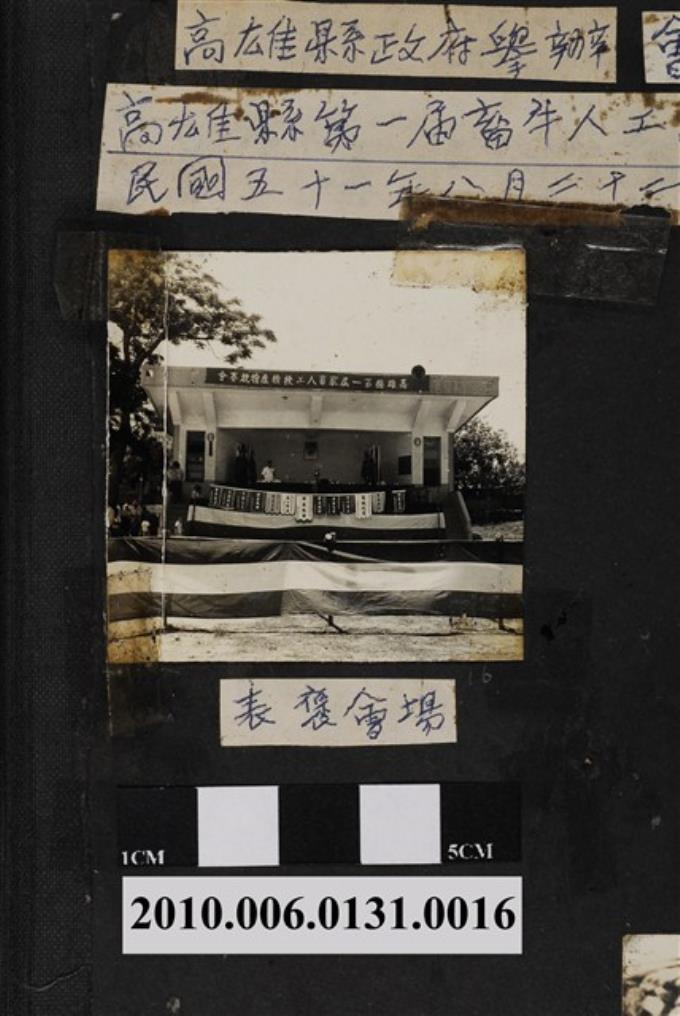 高雄縣政府舉辦
會
高雄縣第一屆畜牛人工
民國五十一年八月二十二
高雄縣第一屆家畜人工授精產犢競賽會
16
表褒會場
1CM
5CM
2010.006.0131.0016